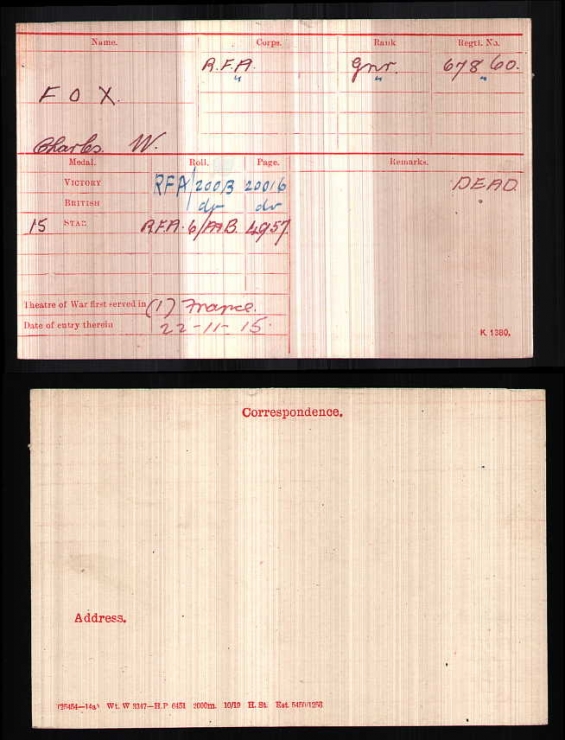 Name. Corps. Rank Regtl. No.
R.F.A. Gnr. 67860.
" " "
FOX.
Charles W.
Medal. Roll. Page. Remarks.
VICTORY RFA/200B 20016 DEAD
BRITISH do do
15 STAR RFA. 6/AAB. 4957
Theatre of War first served in (1) France.
Date of entry therein 22-11-15.
K 1380.
Correspondence.
Address.
Wt. W 2000m. 10/19 H. St.